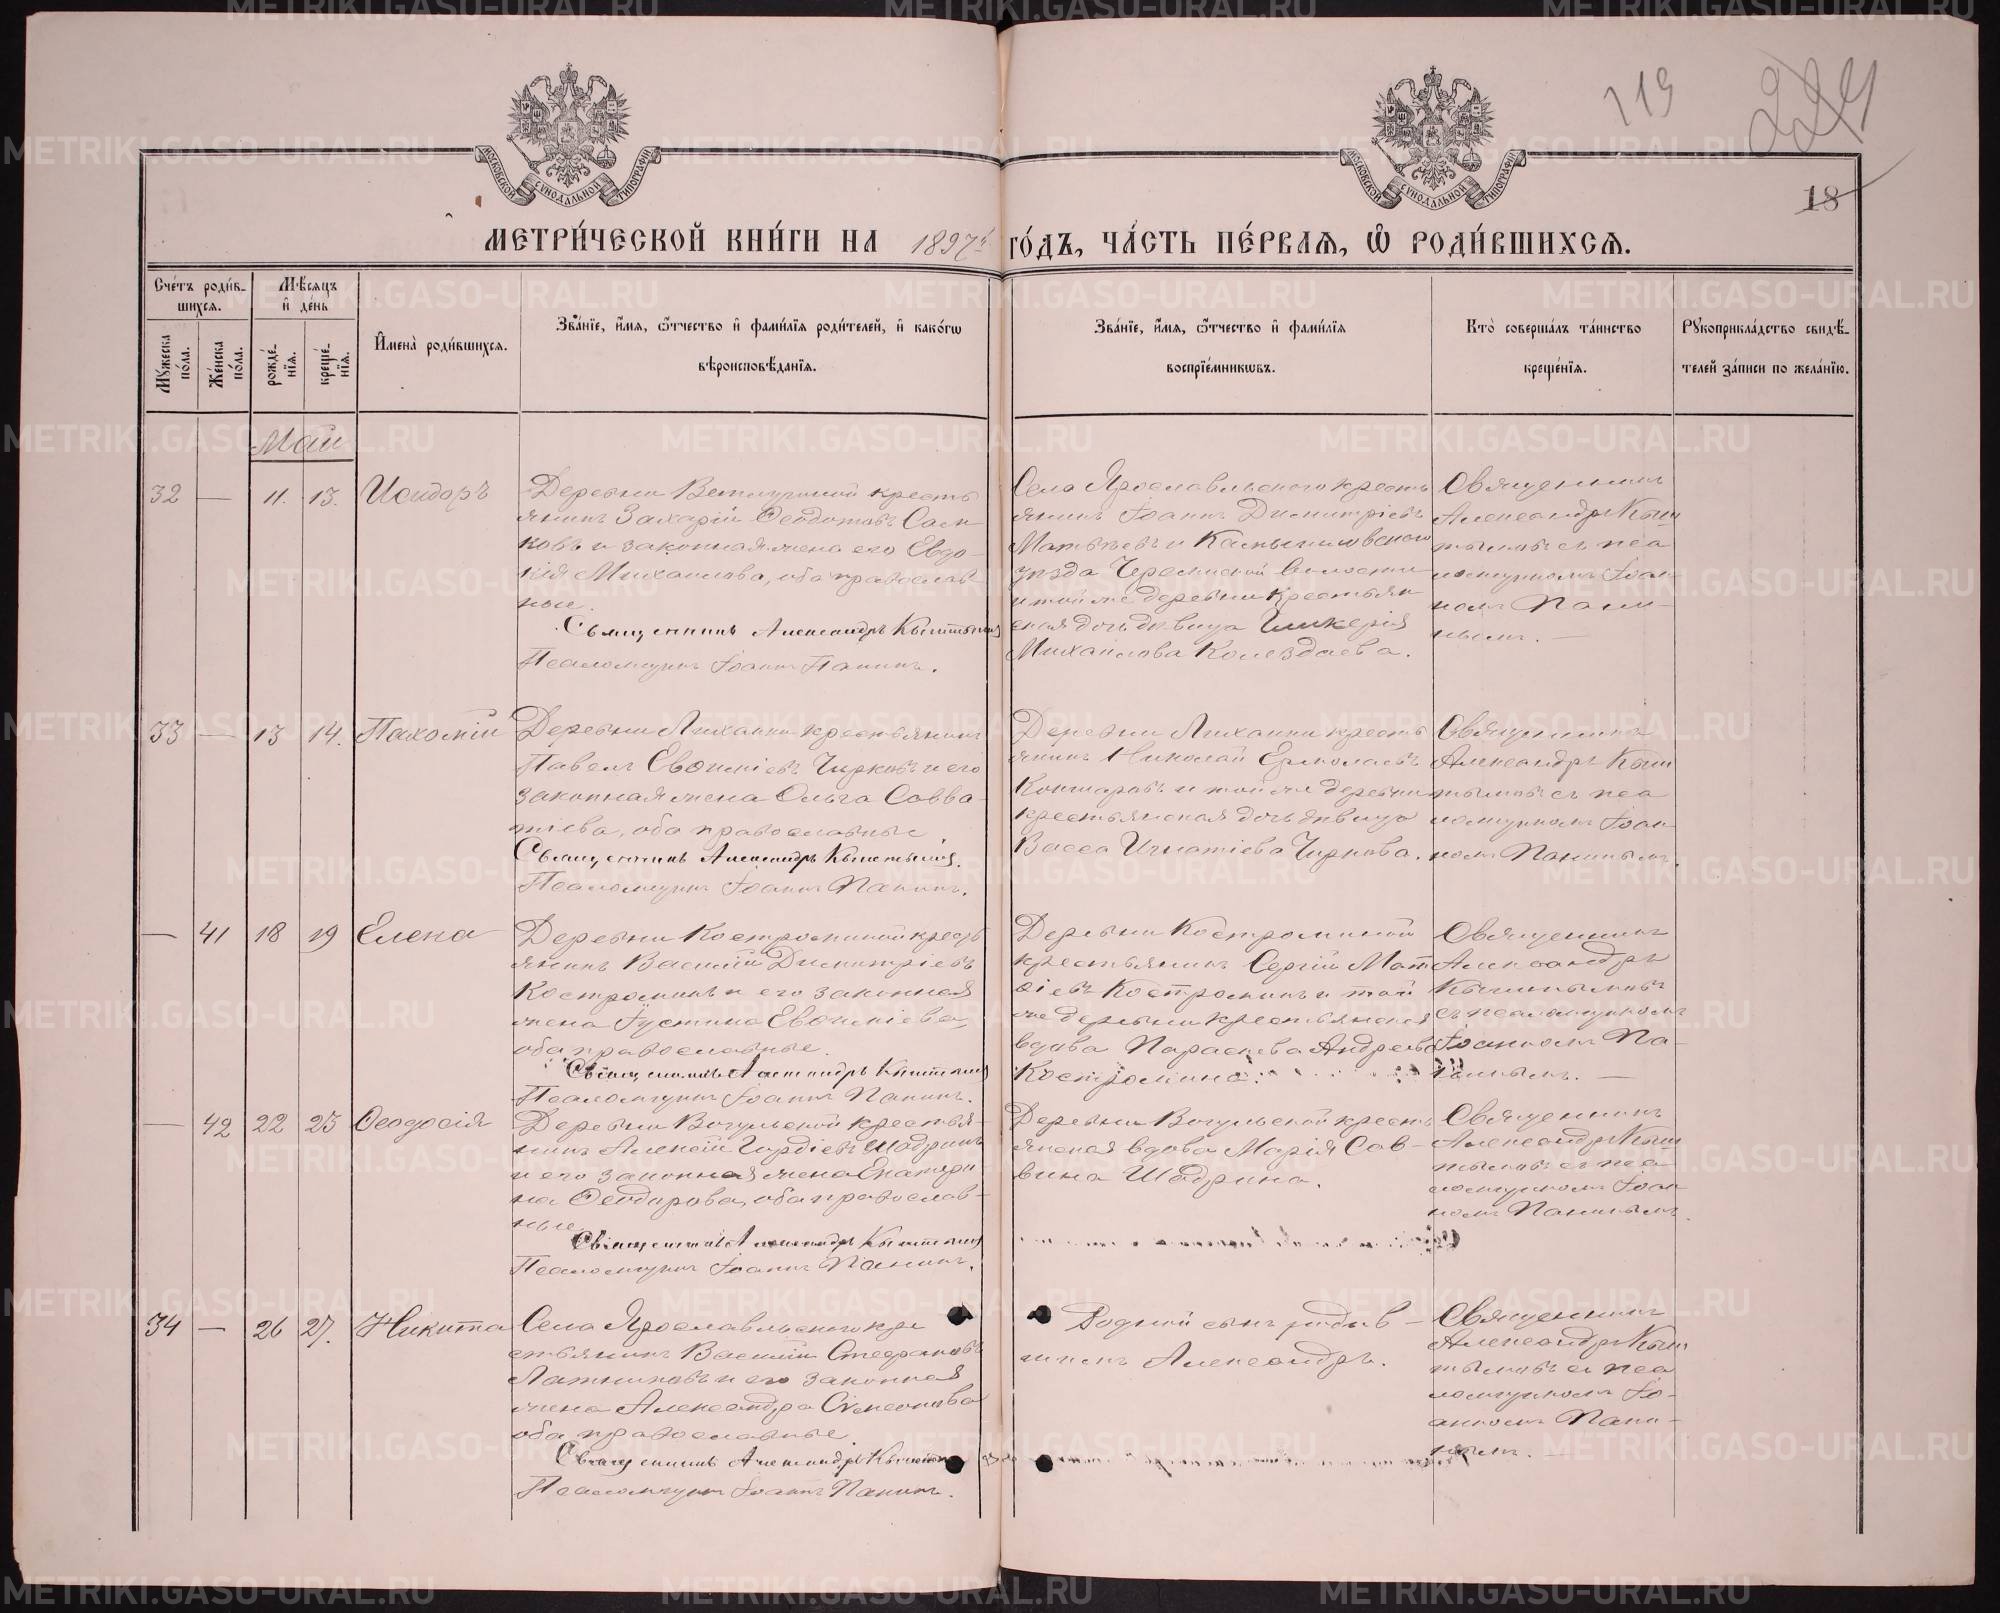 119
224
18
МОСКОВСКОЙ СѴНОДАЛЬНОЙ ТИПОГРАФІИ
МОСКОВСКОЙ СѴНОДАЛЬНОЙ ТИПОГРАФІИ
МЕТРИ́ЧЕСКОЙ КНИ́ГИ НА 1897й ГО́ДЪ, ЧА́СТЬ ПЕ́РВАЯ, Ѡ҆ РОДИ́ВШИХСЯ.
Сче́тъ роди́в-
шихся.
Му́жеска
по́ла.
Же́нска
по́ла.
Мѣ́сяцъ
и҆ де́нь
рожде́-
нїя.
креще́-
нїя.
И҆мена̀ роди́вшихся.
Зва́нїе, и҆́мя, ѻ҆́тчество и҆ фами́лїя роди́телей, и҆ како́гѡ
вѣроисповѣ́данїя.
Зва́нїе, и҆́мя, ѻ҆́тчество и҆ фами́лїя
воспрїе́мникѡвъ.
Кто̀ соверша́лъ та́инство
креще́нїя.
Рꙋкоприкла́дство свидѣ́-
телей за́писи по жела́нїю.
Май
32 — 11. 13. Исидоръ
Деревни Ветлугиной кресть
янинъ Захарій Ѳеодотовъ Сам-
ковъ и законная жена его Евдо-
кія Михаилова, оба православ
ные.
Священникъ Александръ Кыштымовъ
Псаломщикъ Іоаннъ Панинъ.
Села Ярославльскаго кресть
янинъ Іоаннъ Димитріевъ
Матвѣевъ и Камышловскаго
уѣзда Черемисской волости
и той же деревни крестьян
ская дочь дѣвица Гликерія
Михаилова Колездаева.
Священникъ
Александръ Кыш
тымовъ съ пса
ломщикомъ Іоан
номъ Пани-
нымъ. —
33 — 13 14. Пахомій
Деревни Луханки крестьянинъ
Павелъ Евѳиміевъ Чирковъ и его
законная жена Ольга Савва-
тіева, оба православные.
Священникъ Александръ Кыштымовъ.
Псаломщикъ Іоаннъ Панинъ.
Деревни Луханки кресть
янинъ Николай Ермолаевъ
и той же деревни
крестьянская дочь дѣвица
Васса Игнатіева Чиркова.
Священникъ
Александръ Кыш
тымовъ съ пса
ломщикомъ Іоан
номъ Панинымъ.
— 41 18 19 Елена
Деревни Костроминой кресть
янинъ Василій Димитріевъ
Костроминъ и его законная
жена Іустина Евѳиміева
оба православные.
Священникъ Александръ Кыштымовъ
Псаломщикъ Іоаннъ Панинъ.
Деревни Костроминой
крестьянинъ Сергій Мат
ѳіевъ Костроминъ и той
же деревни крестьянская
вдова Параскева Андреева
Костромина.
Священникъ
Александръ
Кыштымовъ
съ псаломщикомъ
Іоанномъ Па-
нинымъ. —
— 42 22 23 Ѳеодосія
Деревни Вогульской крестья-
нинъ Алексій Гордіевъ Шадринъ
и его законная жена Екатери
на Ѳеодорова, оба православ-
ные.
Священникъ Александръ Кыштымовъ
Псаломщикъ Іоаннъ Панинъ.
Деревни Вогульской кресть
янская вдова Марія Сав-
вина Шадрина.
Священникъ
Александръ Кыш
тымовъ съ пса
ломщикомъ Іоан
номъ Панинымъ.
34 — 26 27. Никита
Села Ярославльскаго кре
стьянинъ Василій Стефановъ
Латниковъ и его законная
жена Александра Симеонова
оба православные.
Священникъ Александръ Кыштымовъ
Псаломщикъ Іоаннъ Панинъ.
Родной сынъ родив-
шихъ Александръ.
Священникъ
Александръ Кыш
тымовъ съ пса
ломщикомъ Іо-
анномъ Пани-
нымъ. —
METRIKI.GASO-URAL.RU